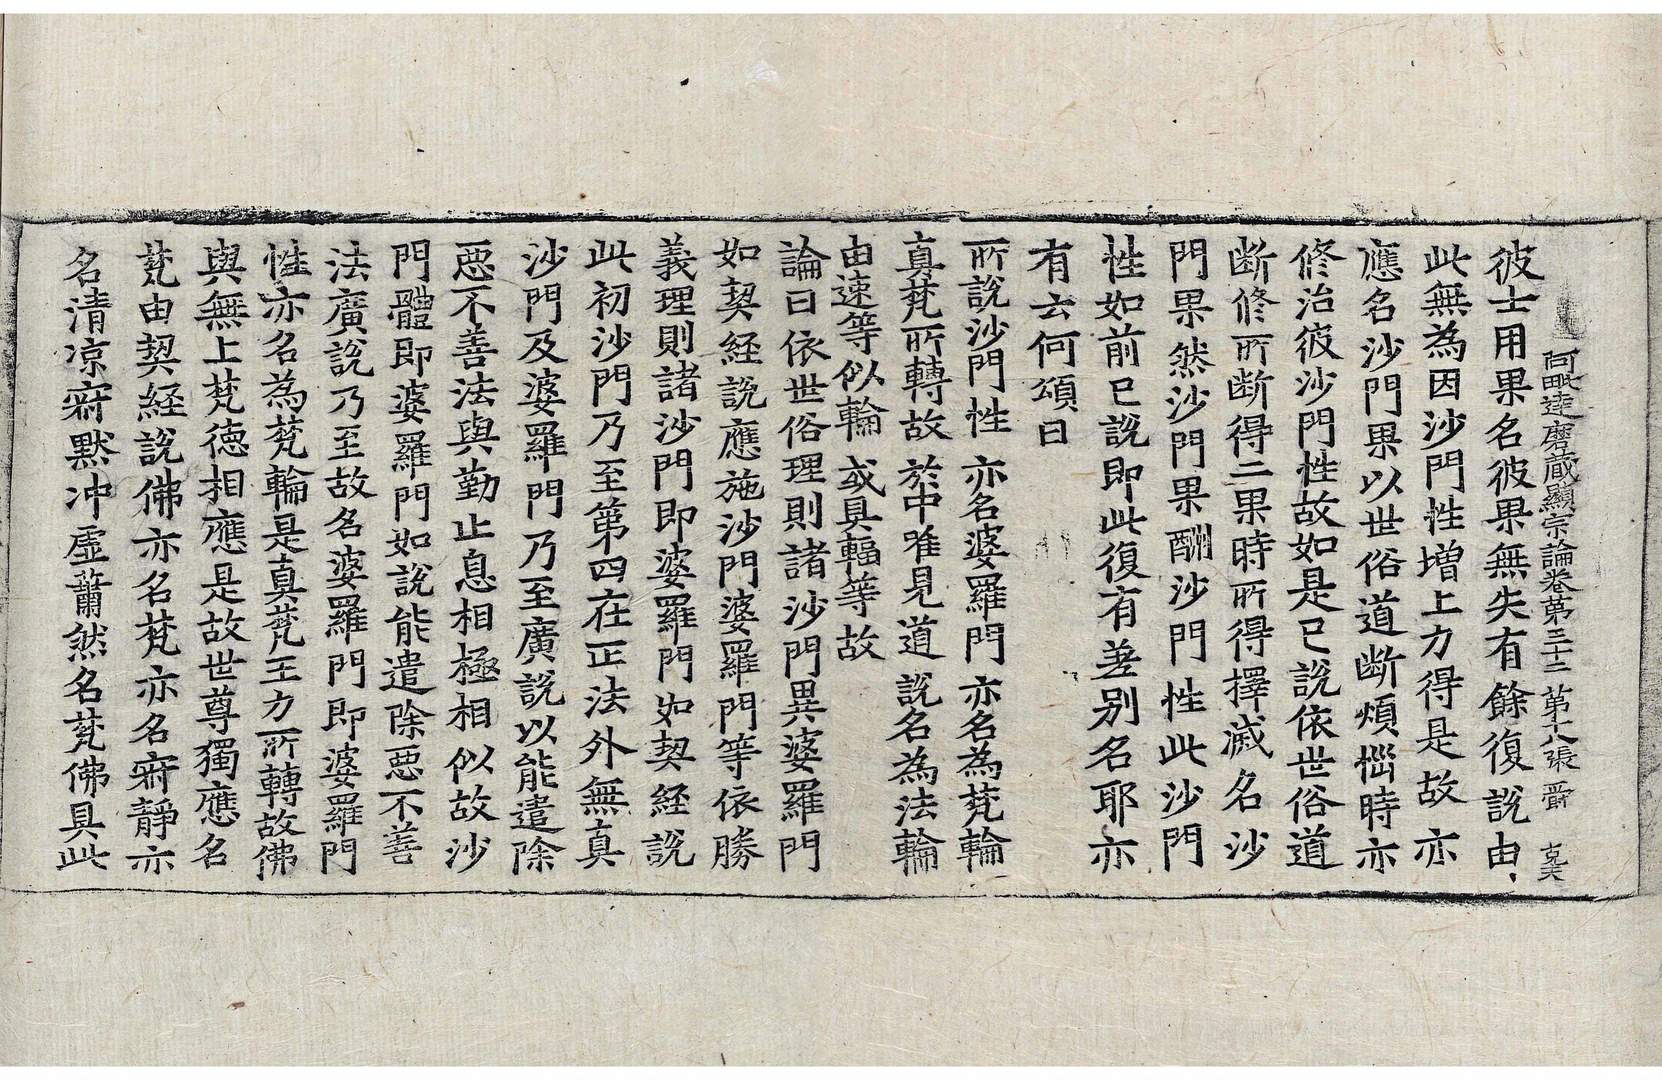 阿毗達磨藏顯宗論卷第三十二 第十八張 爵 克夫
彼士用果名彼果無失有餘復說由
此無為因沙門性增上力得是故亦
應名沙門果以世俗道斷煩惱時亦
修治彼沙門性故如是已說依世俗道
斷修所斷得二果時所得擇滅名沙
門果然沙門果酬沙門性此沙門
性如前已說即此復有差別名耶亦
有云何頌曰
所說沙門性 亦名婆羅門 亦名為梵輪
真梵所轉故 於中唯見道 說名為法輪
由速等似輪 或具輻等故
論曰依世俗理則諸沙門異婆羅門
如契經說應施沙門婆羅門等依勝
義理則諸沙門即婆羅門如契經說
此初沙門乃至第四在正法外無真
沙門及婆羅門乃至廣說以能遣除
惡不善法與勤止息相極相似故沙
門體即婆羅門如說能遣除惡不善
法廣說乃至故名婆羅門即婆羅門
性亦名為梵輪是真梵王力所轉故佛
與無上梵德相應是故世尊獨應名
梵由契經說佛亦名梵亦名寂靜亦
名清凉寂默沖虛蕭然名梵佛具此